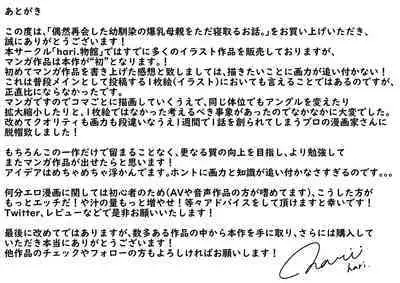 あとがき
この度は、「偶然再会した幼馴染の爆乳母親をただ寝取るお話。」をお買い上げいただき、
誠にありがとうございます！
本サークル「hari.物館」ではすでに多くのイラスト作品を販売しておりますが、
マンガ作品は本作が“初”となります。！
初めてマンガ作品を書き上げた感想と致しましては、描きたいことに画力が追い付かない！
これは普段メインとして投稿する1枚絵(イラスト)においても言えることではあるのですが、
正直比にならなかったです。
マンガですのでコマごとに描画していくうえで、同じ体位でもアングルを変えたり
拡大縮小したりと、1枚絵ではなかった考えるべき事象があったのでなかなかに大変でした。
改めてクオリティも画力も段違いなうえ1週間で1話を創られてしまうプロの漫画家さんに
脱帽致しました！
もちろんこの一作だけで留まることなく、更なる質の向上を目指し、より勉強して
またマンガ作品が出せたらと思います！
アイデアはめちゃめちゃ浮かんでます。ホントに画力と知識が追い付かなさすぎるのです。。。
何分エロ漫画に関しては初心者のため(AVや音声作品の方が嗜めてます)、こうした方が
もっとエッチだ！や汁の量もっと増やせ！等々アドバイスをして頂けますと幸いです！
Twitter、レビューなどで是非お願いいたします！
最後に改めてではありますが、数多ある作品の中から本作を手に取り、さらには購入して
いただき本当にありがとうございます！
他作品のチェックやフォローの方もよろしければお願いします！
hari.
hari.